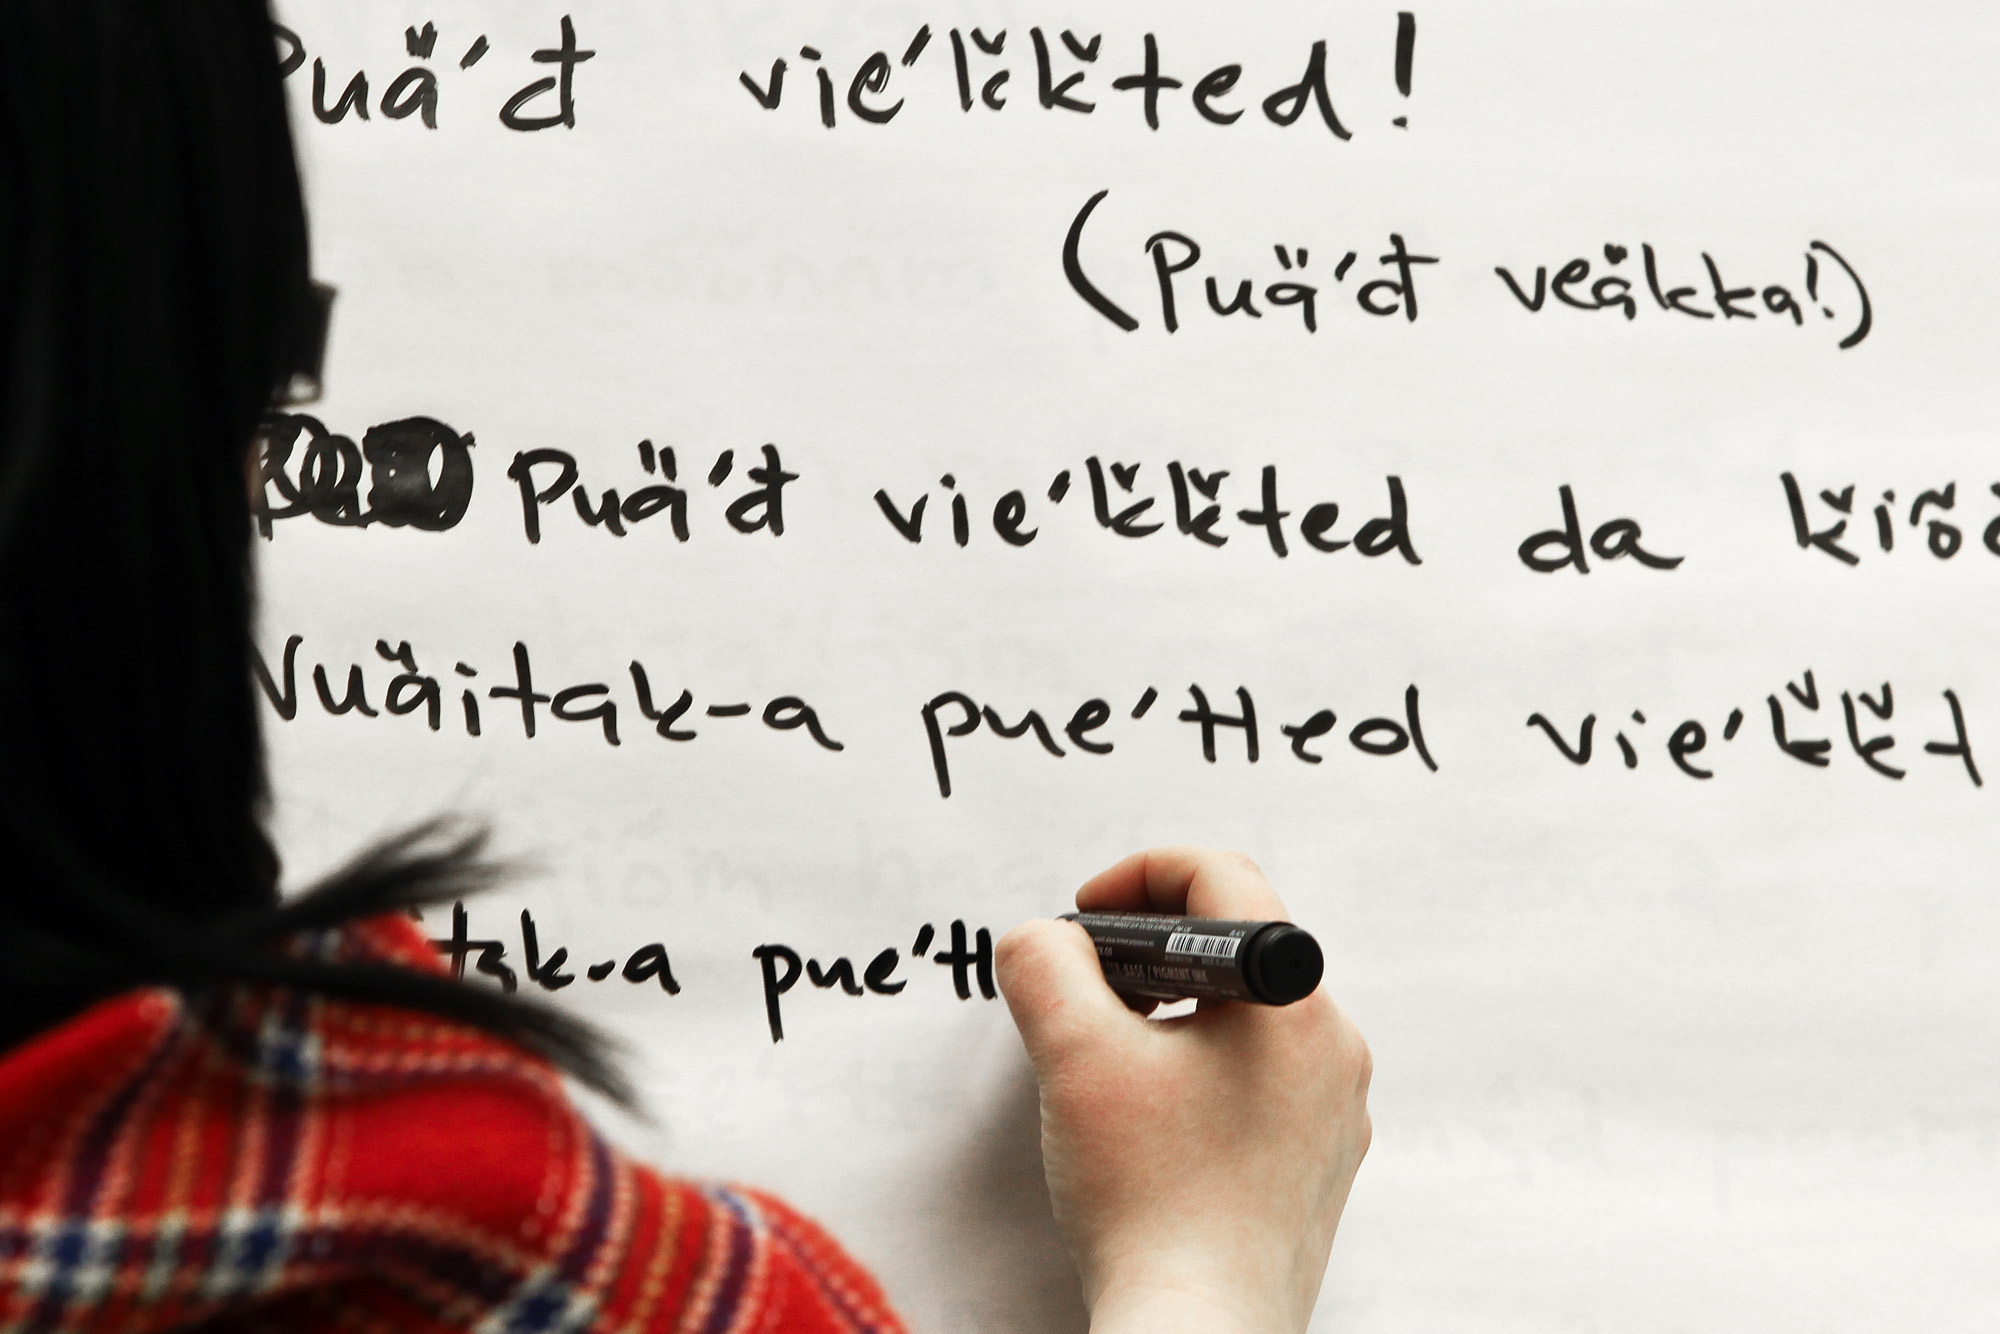 Puä´đ vie´ǩǩted!
(Puä´đ veäkka!)
Puä´đ vie´ǩǩted da ǩiõ
Vuäitak-a pue´tted vie´ǩǩt
tak-a pue´tt
PIGMENT INK